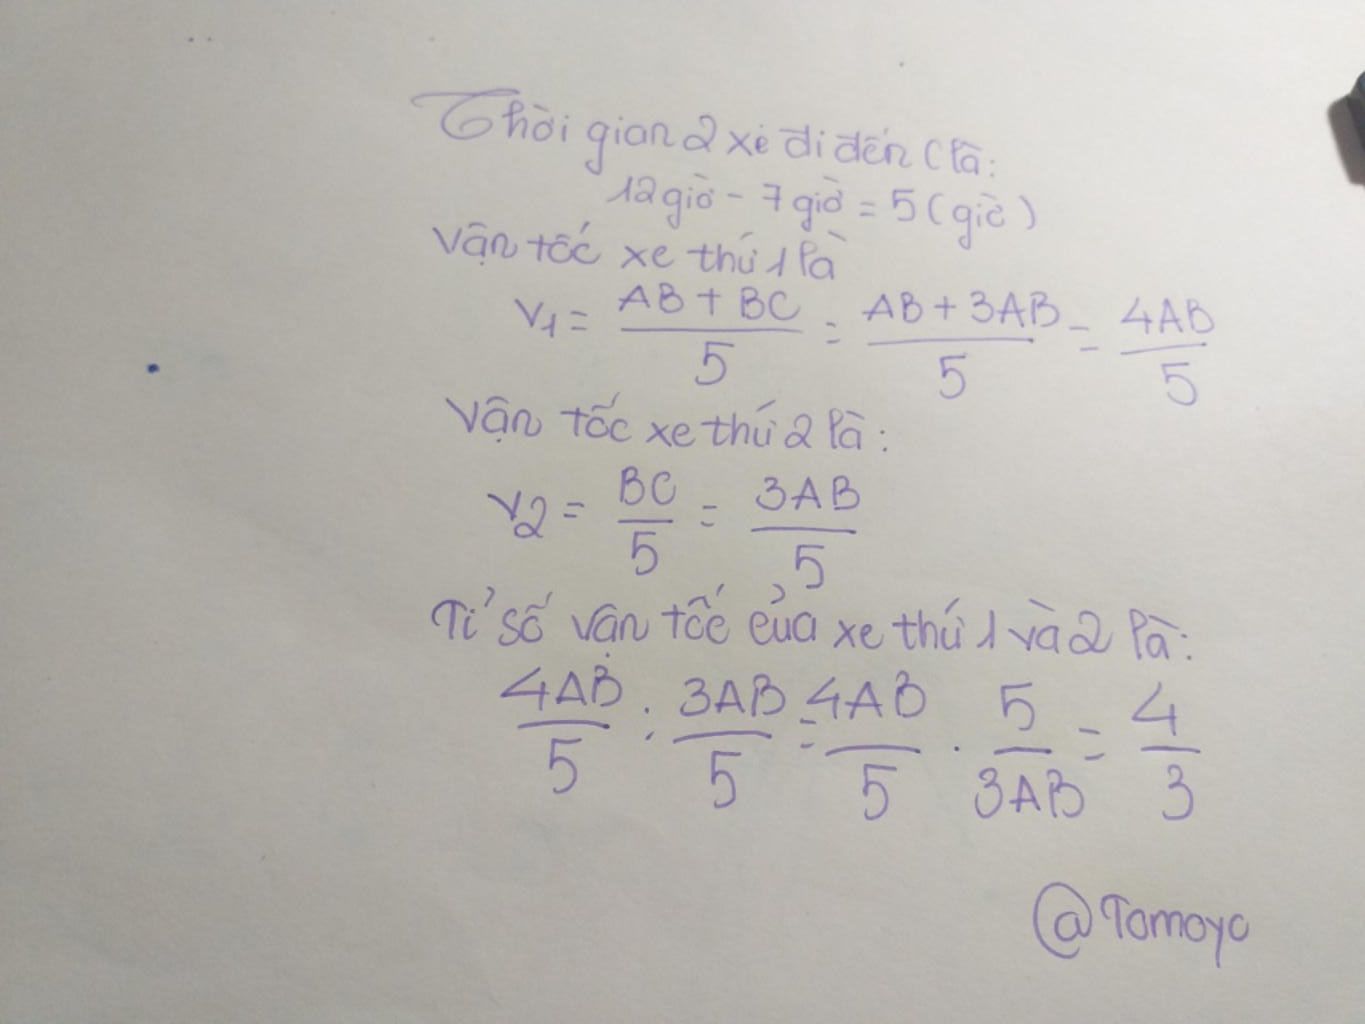 Thời gian 2 xe đi đến C là:
12 giờ - 7 giờ = 5 (giờ)
Vận tốc xe thứ 1 là
V1 = AB + BC / 5 = AB + 3AB / 5 = 4AB / 5
Vận tốc xe thứ 2 là:
V2 = BC / 5 = 3AB / 5
Tỉ số vận tốc của xe thứ 1 và 2 là:
4AB / 5 : 3AB / 5 = 4AB / 5 . 5 / 3AB = 4 / 3
@Tomoyo